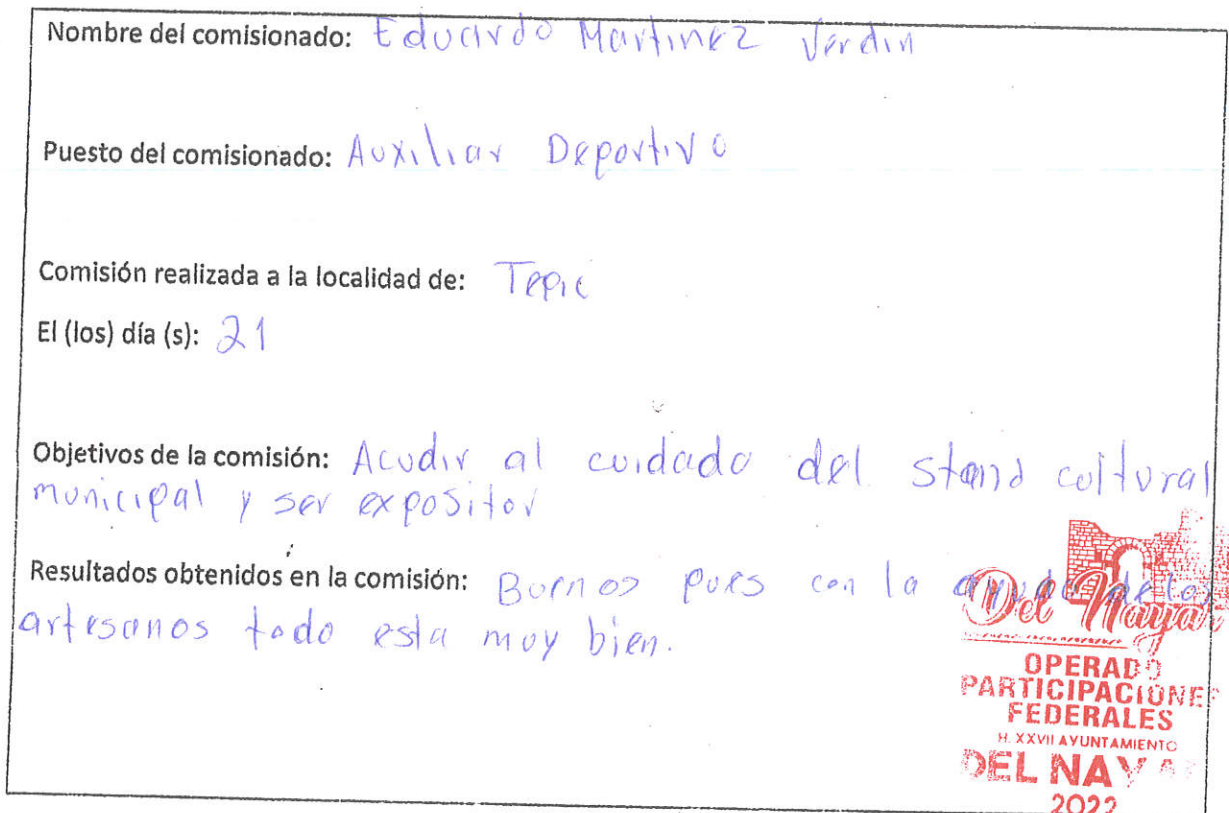 Nombre del comisionado: Eduardo Martinez Verdin
Puesto del comisionado: Auxiliar Deportivo
Comisión realizada a la localidad de: Tepic
El (los) día (s): 21
Objetivos de la comisión: Acudir al cuidado del stand cultural
municipal y ser expositor
Resultados obtenidos en la comisión: Buenos pues con la ayuda de los
artesanos todo esta muy bien.
Del Nayar
OPERADO
PARTICIPACIONES
FEDERALES
H. XXVII AYUNTAMIENTO
DEL NAYAR
2022